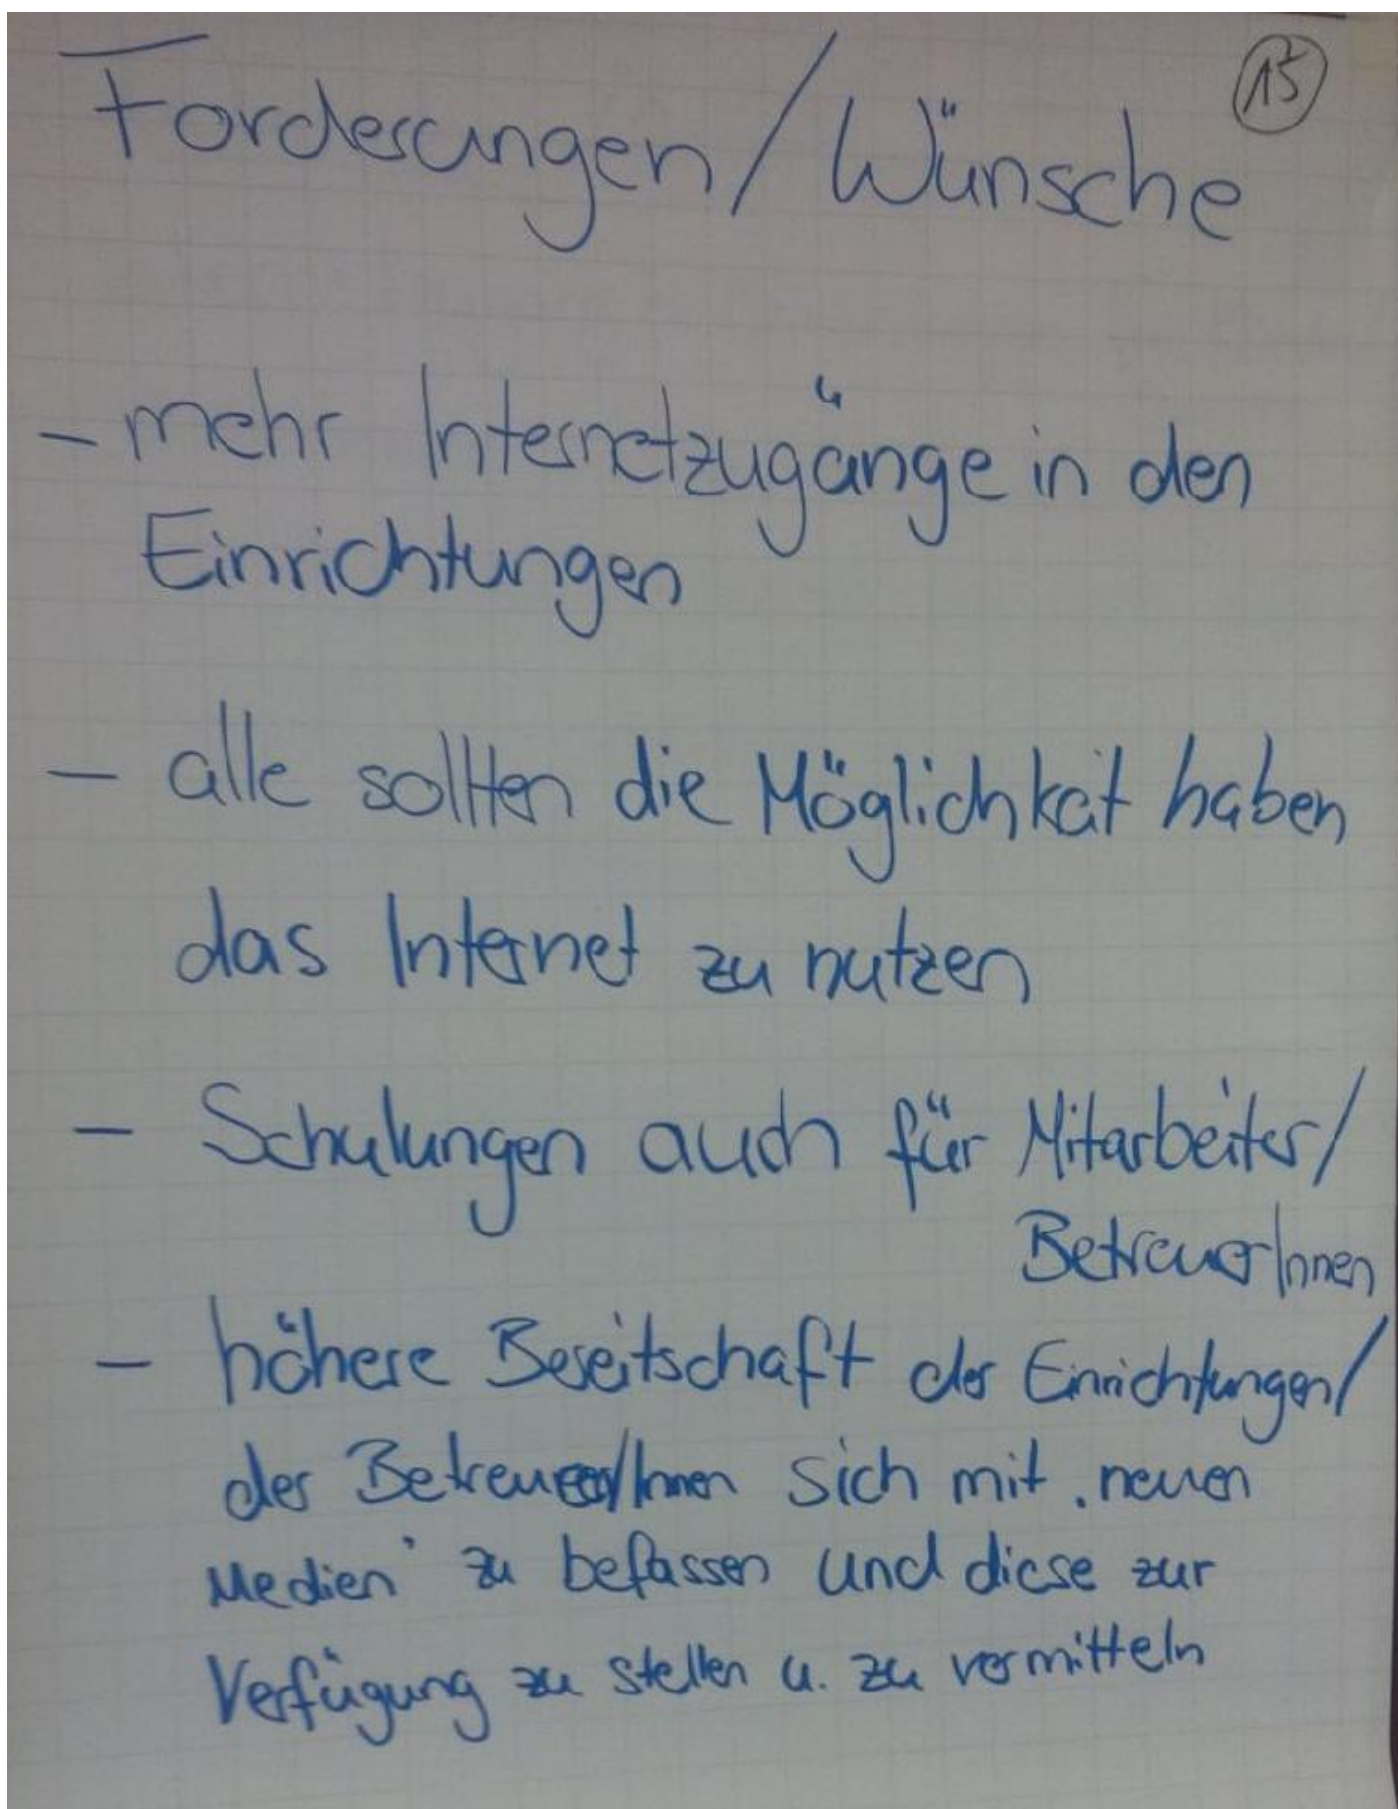 15
Forderungen/Wünsche
- mehr Internetzugänge in den
Einrichtungen
- alle sollten die Möglichkeit haben
das Internet zu nutzen
- Schulungen auch für Mitarbeiter/
BetreuerInnen
- höhere Bereitschaft der Einrichtungen/
der Betreuer/Innen sich mit "neuen
Medien" zu befassen und diese zur
Verfügung zu stellen u. zu vermitteln